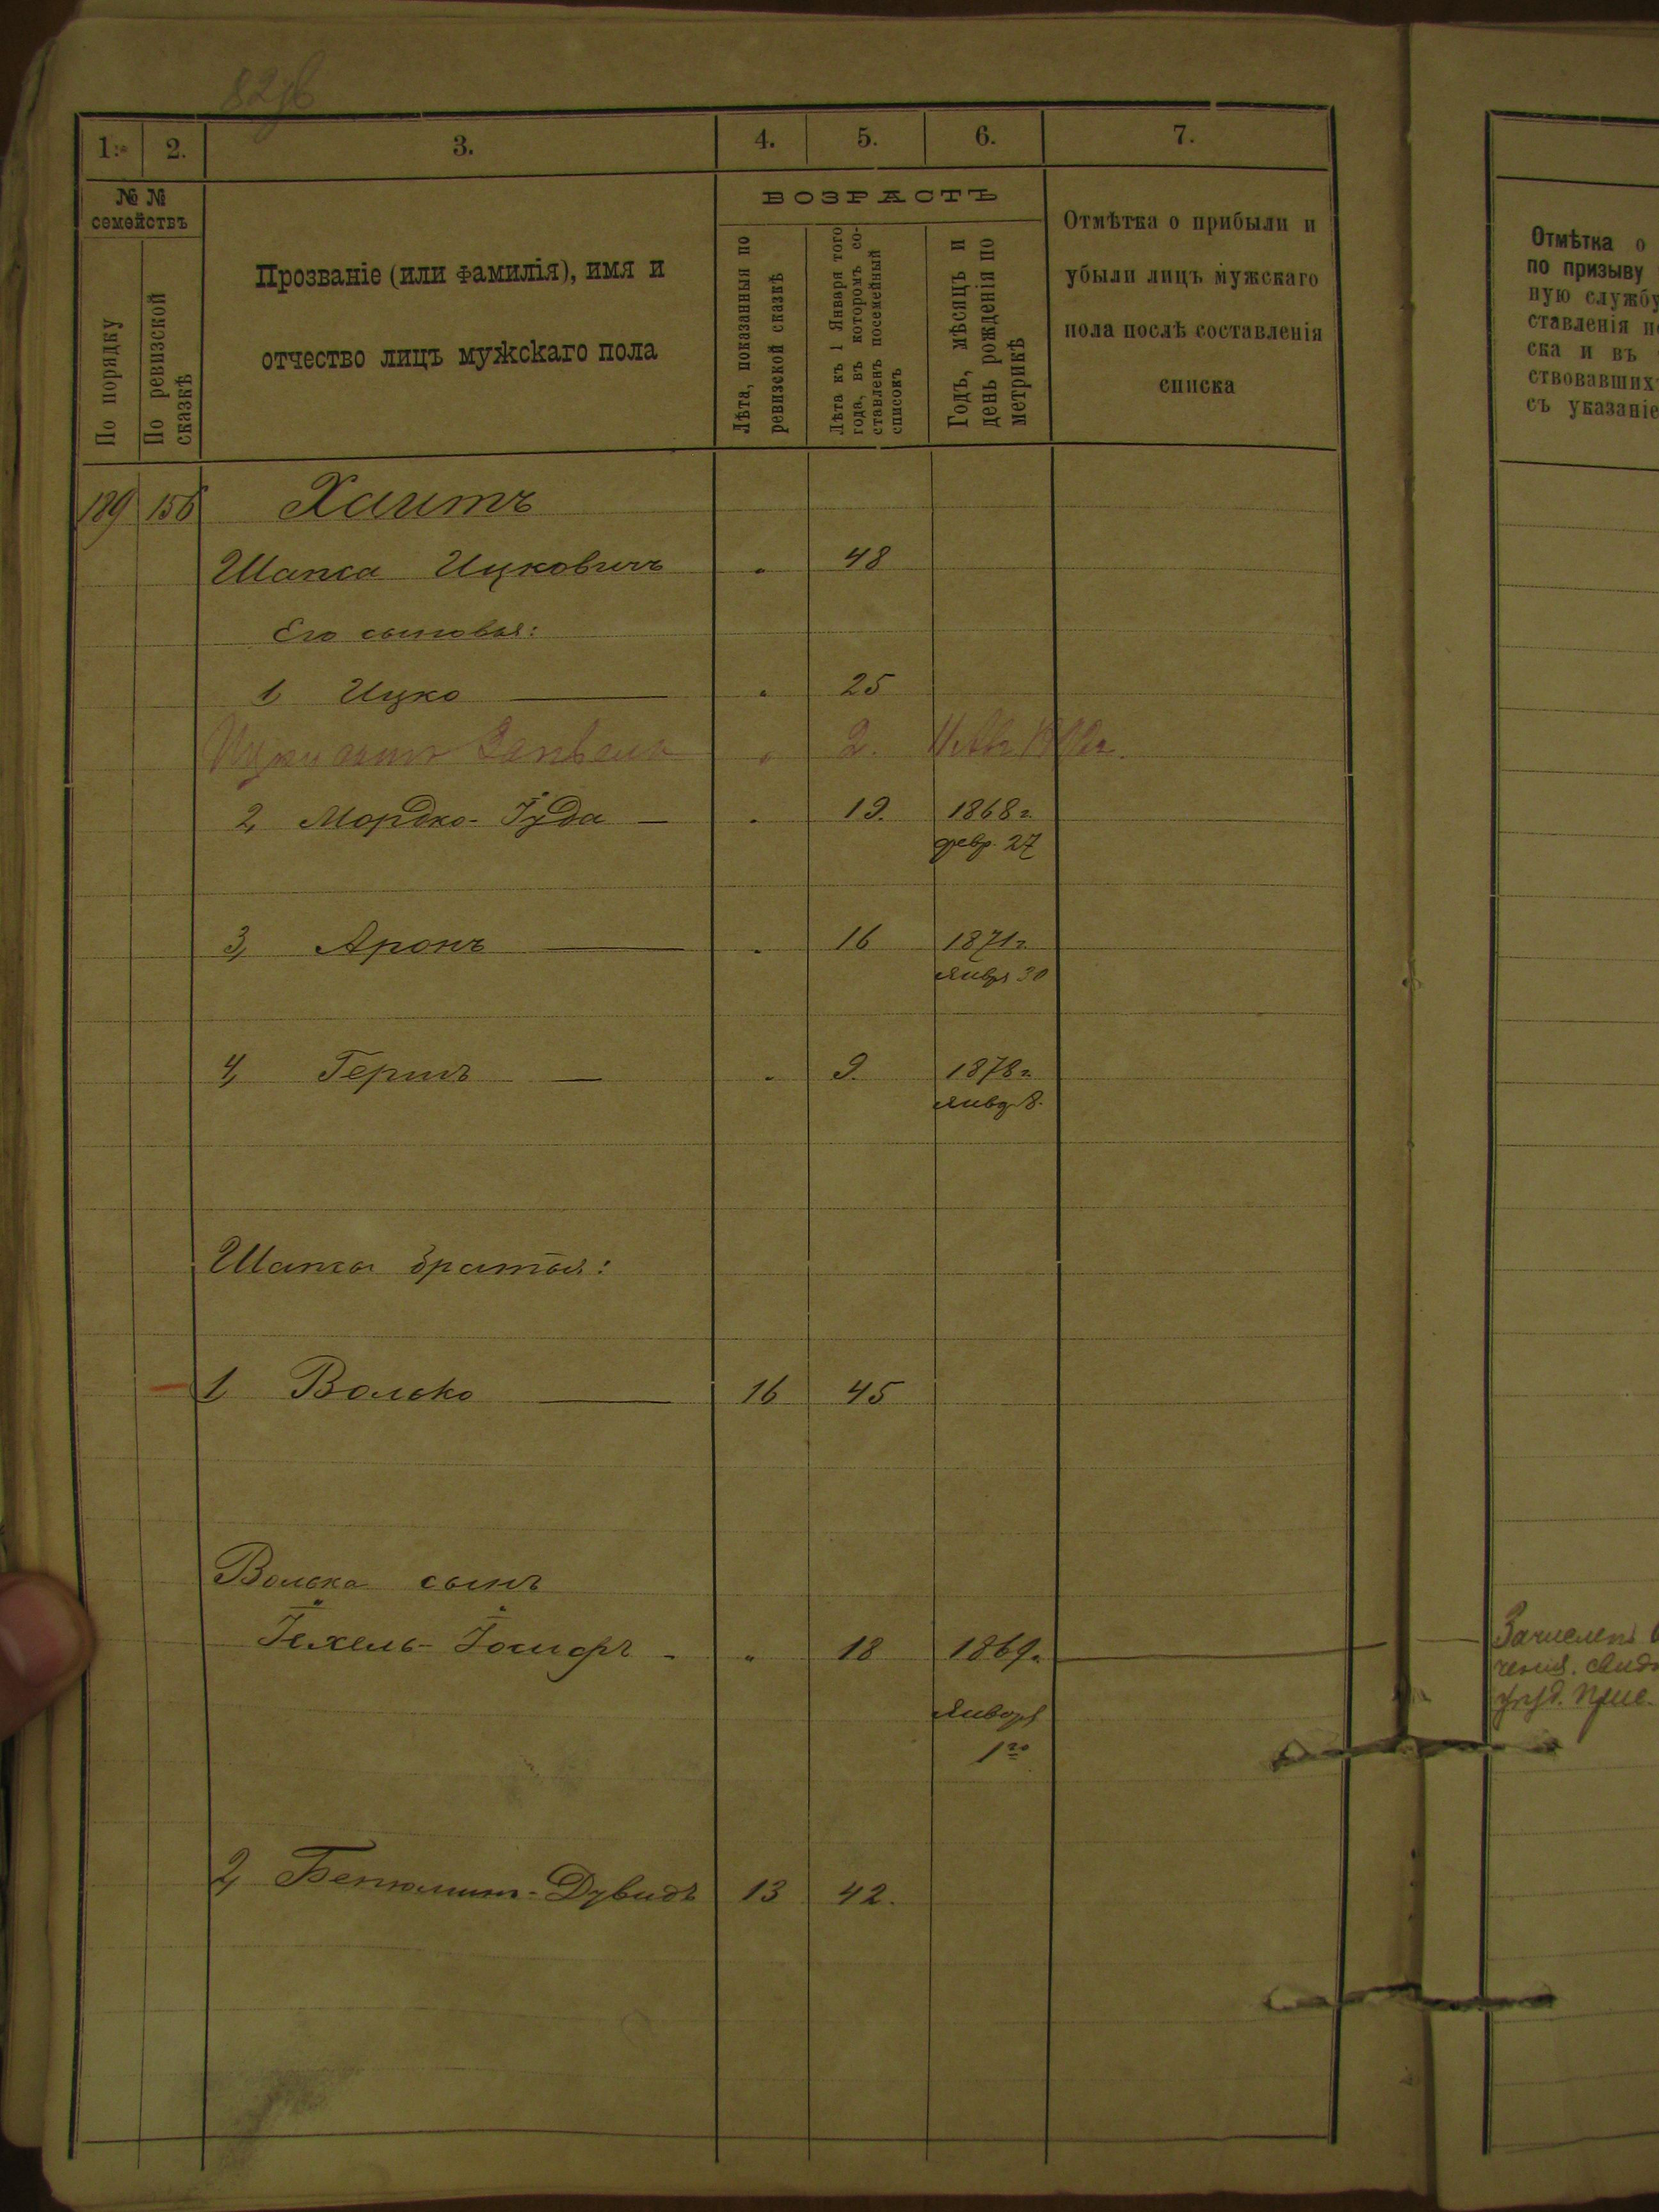 82 об
1. 2. 3. 4. 5. 6. 7.
№ № семействъ
По порядку
По ревизской сказкѣ
Прозваніе (или фамилія), имя и
отчество лицъ мужскаго пола
ВОЗРАСТЪ
Лѣта, показанныя по
ревизской сказкѣ
Лѣта къ 1 Января того
года, въ которомъ со-
ставленъ посемейный
списокъ
Годъ, мѣсяцъ и
день рожденія по
метрикѣ
Отмѣтка о прибыли и
убыли лицъ мужскаго
пола послѣ составленія
списка
Отмѣтка о
по призыву
ную службу
ставленія
ска и въ
ствовавшихъ
съ указаніе
189 156 Хаитъ
Шапса Ицковичъ " 48
Его сыновья:
1, Ицко " 25
Ицки сынъ " 2.
2, Мордко-Іуда " 19. 1868 г.
февр. 27
3, Аронъ " 16 1871 г.
январ 30
4, Гершъ " 9. 1878 г.
янвр. 8.
Шапсы братья:
1, Волько 16 45
Волька сынъ
Іехель-Іосифъ " 18 1869 г.
Января
1го
Зачисленъ
2, Бенюминъ-Дувидъ 13 42.